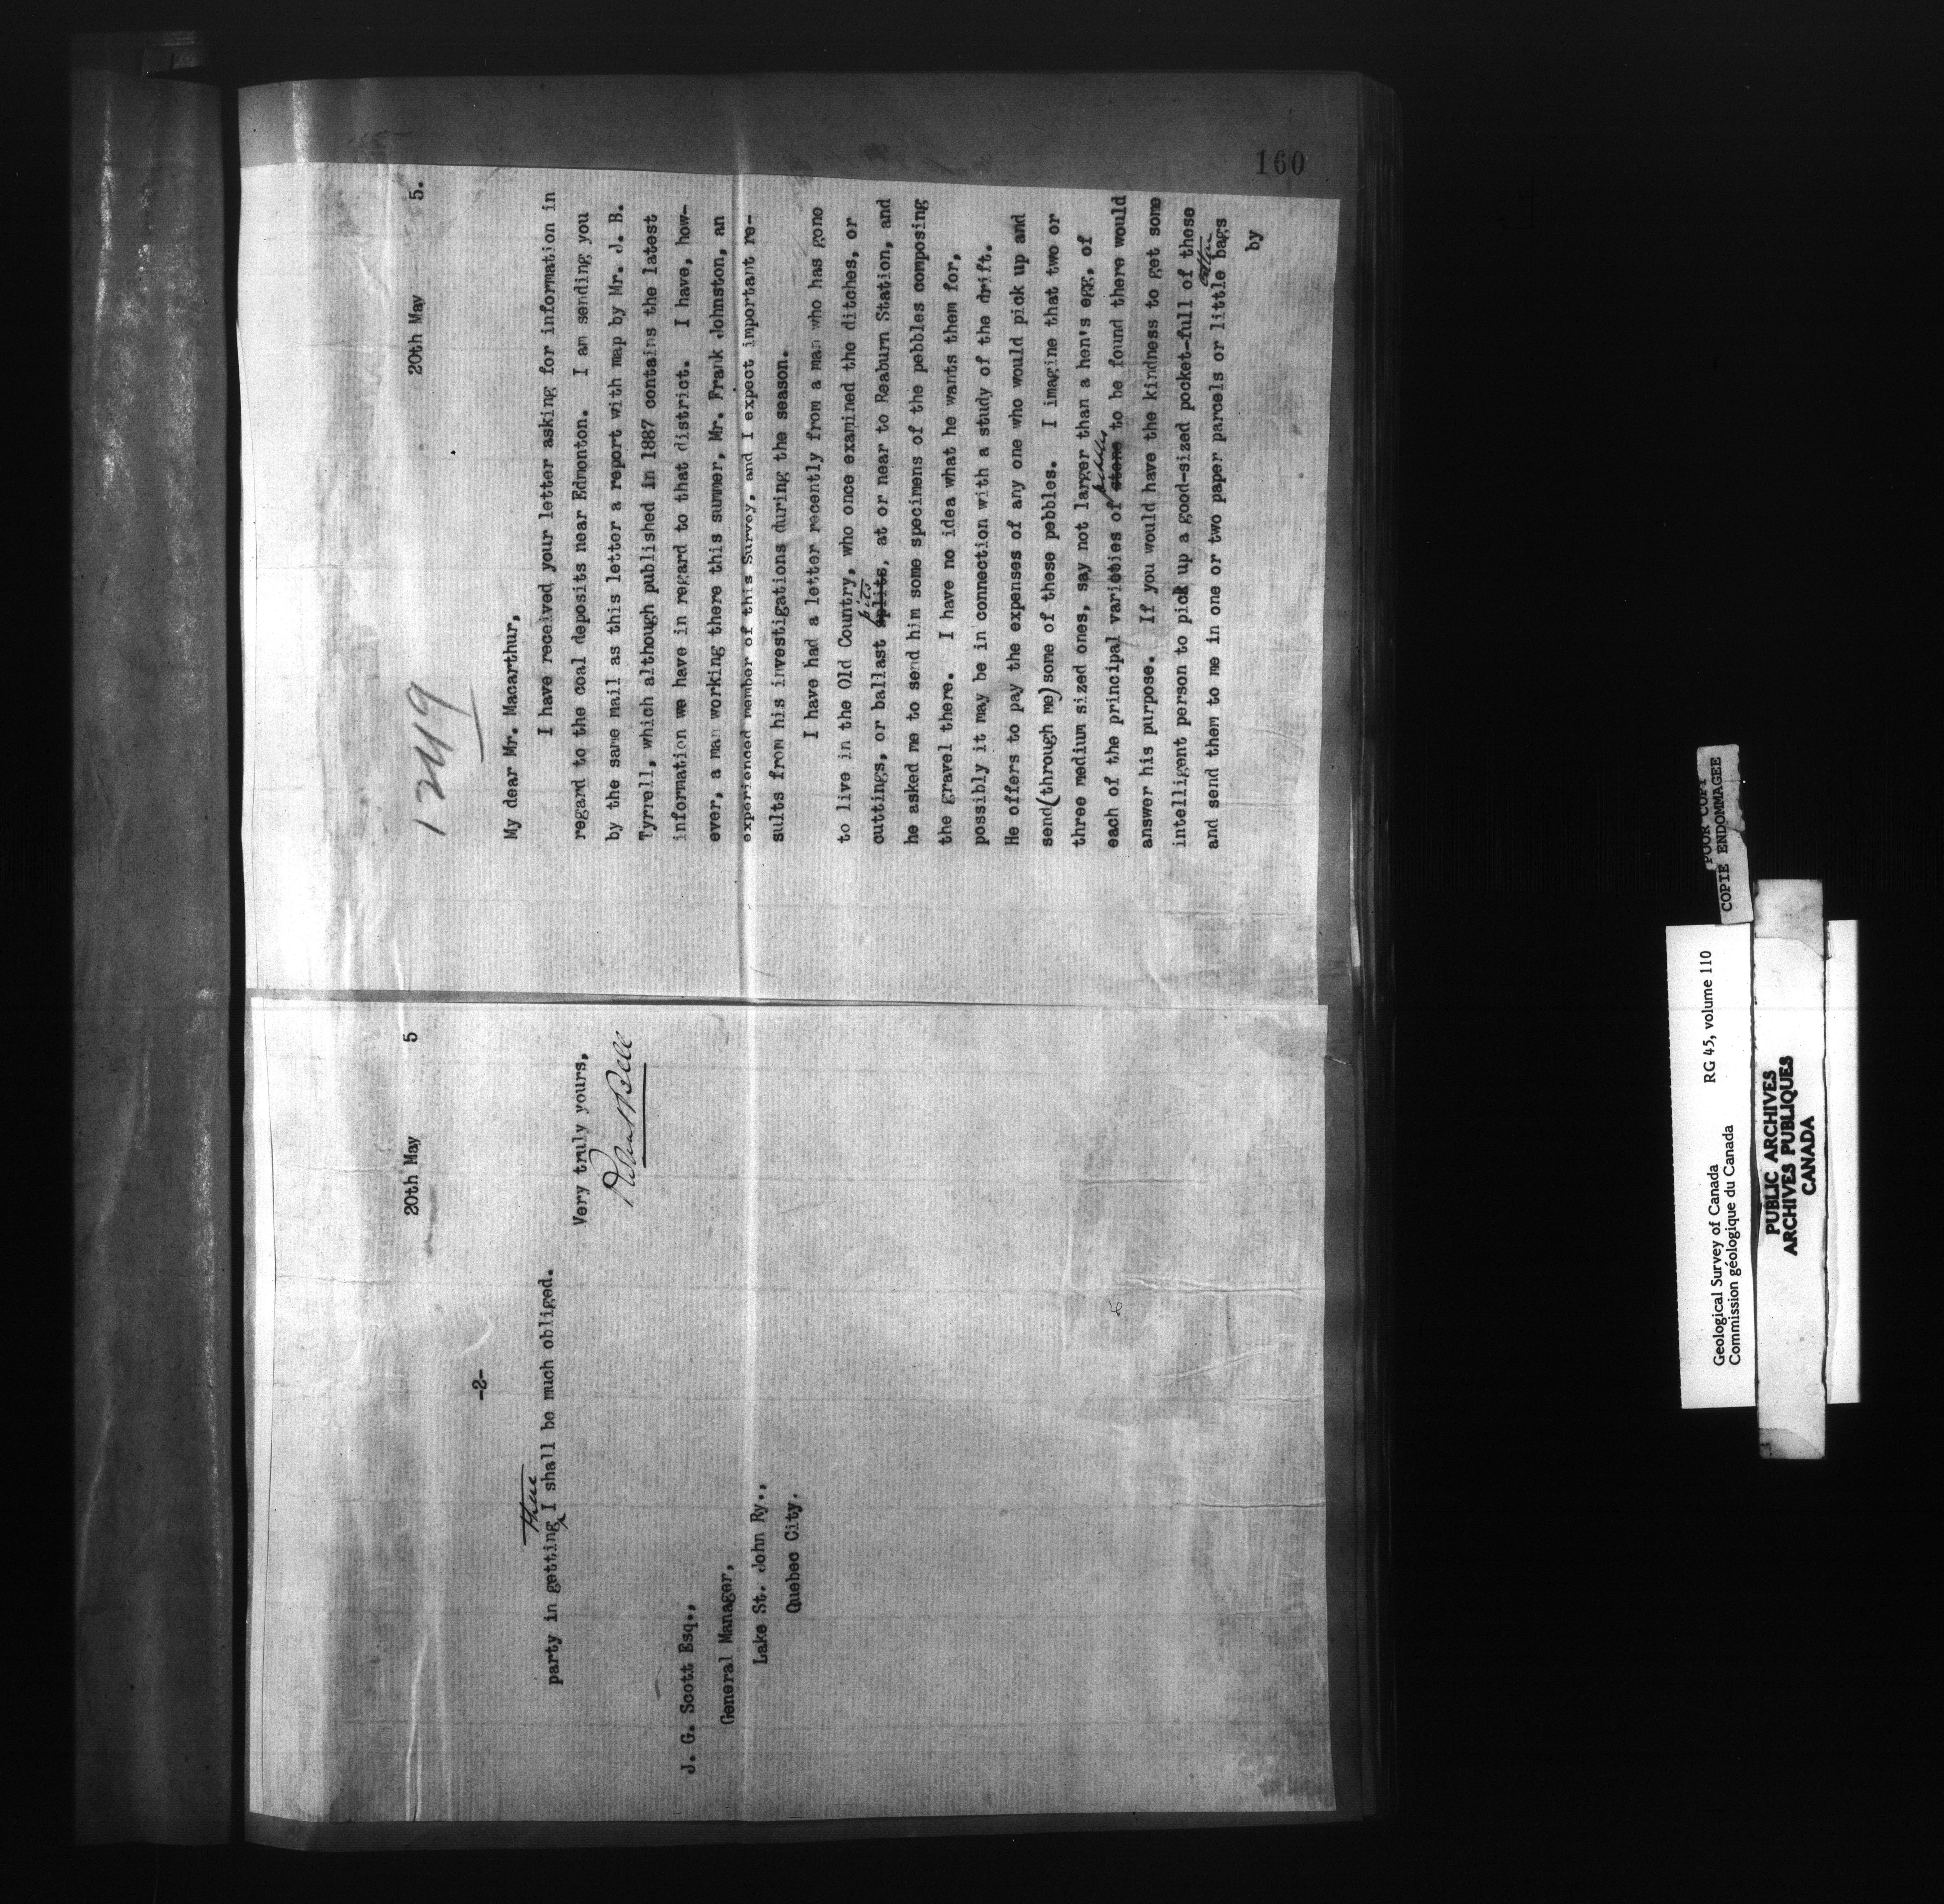 20th May 5
-2-
party in getting these I shall be much obliged.
Very truly yours,
Robert Bell
J. G. Scott Esq.,
General Manager,
Lake St. John Ry.,
Quebec City.
160
1249
20th May 5.
My dear Mr. Macarthur,
I have received your letter asking for information in
regard to the coal deposits near Edmonton. I am sending you
by the same mail as this letter a report with map by Mr. J. B.
Tyrrell, which although published in 1887 contains the latest
information we have in regard to that district. I have, how-
ever, a man working there this summer, Mr. Frank Johnston, an
experienced member of this Survey, and I expect important re-
sults from his investigations during the season.
I have had a letter recently from a man who has gone
to live in the Old Country, who once examined the ditches, or
cuttings, or ballast splits pits, at or near to Reaburn Station, and
he asked me to send him some specimens of the pebbles composing
the gravel there. I have no idea what he wants them for,
possibly it may be in connection with a study of the drift.
He offers to pay the expenses of any one who would pick up and
send(through me)some of these pebbles. I imagine that two or
three medium sized ones, say not larger than a hen's egg, of
each of the principal varieties of stone pebbles to be found there would
answer his purpose. If you would have the kindness to get some
intelligent person to pick up a good-sized pocket-full of these
and send them to me in one or two paper parcels or little cotton bags
by
POOR COPY
COPIE ENDOMMAGEE
Geological Survey of Canada RG 45, volume 110
Commission géologique du Canada
PUBLIC ARCHIVES
ARCHIVES PUBLIQUES
CANADA